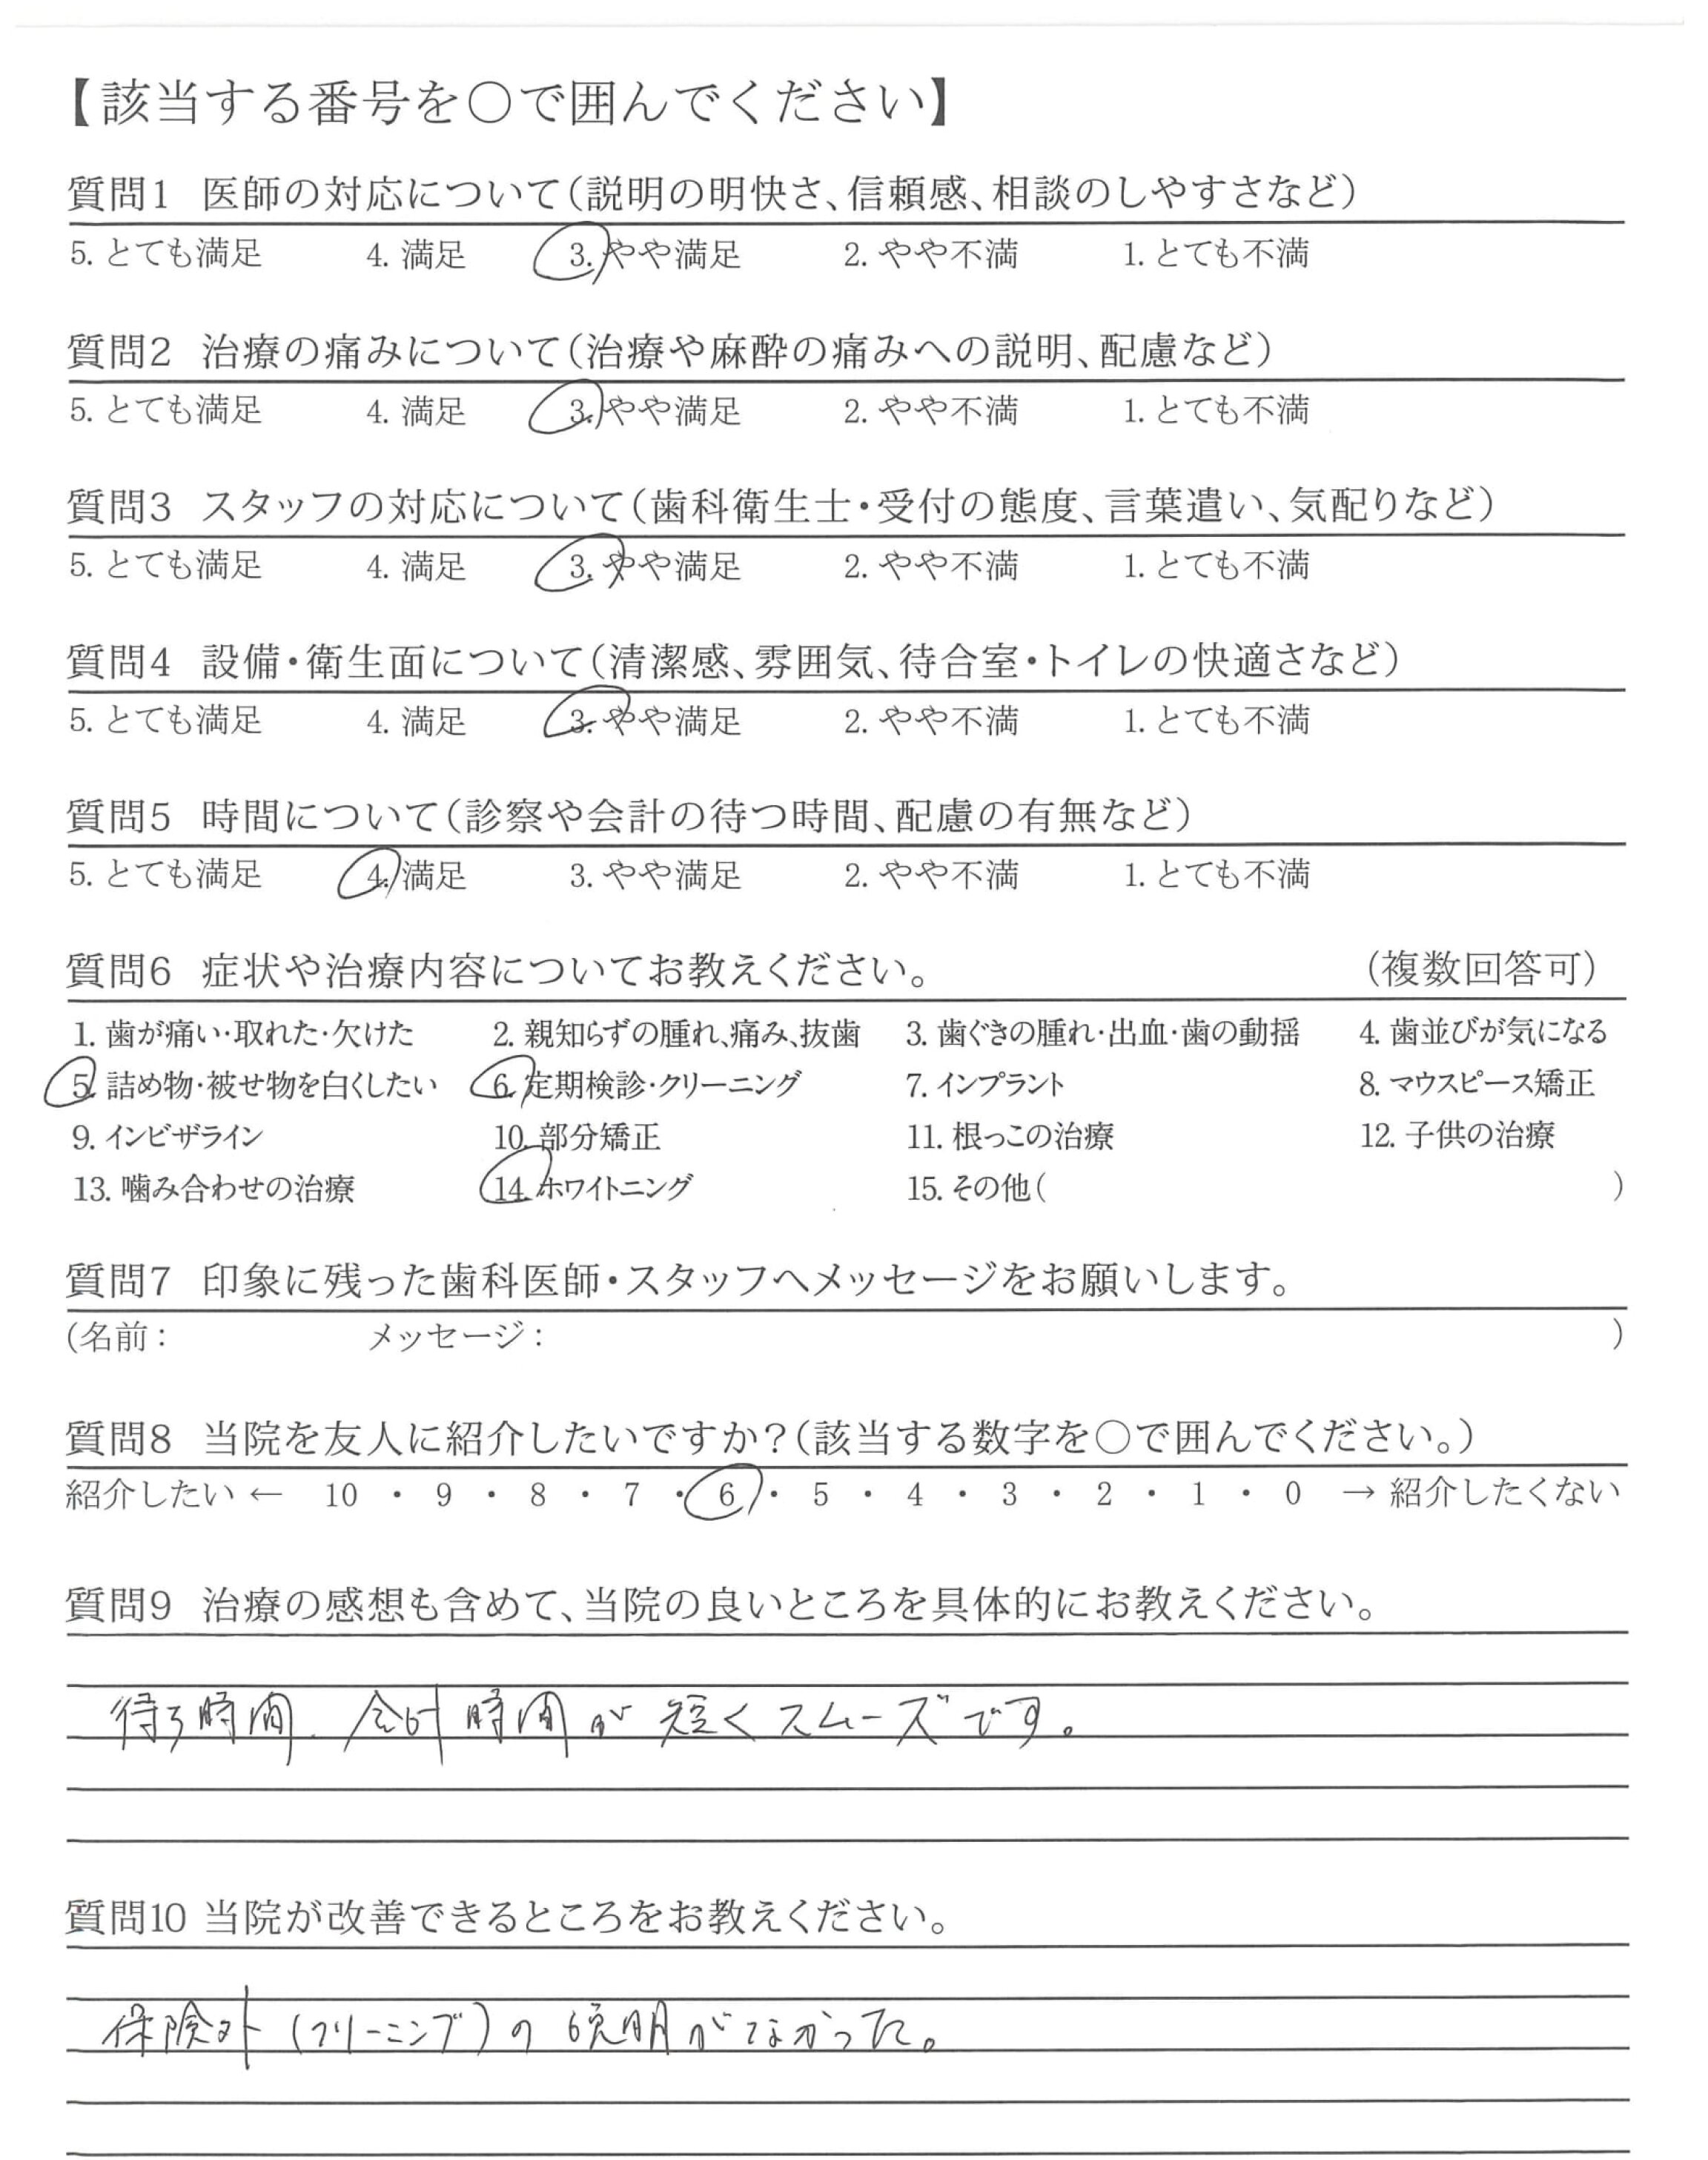 【該当する番号を○で囲んでください】
質問1 医師の対応について(説明の明快さ、信頼感、相談のしやすさなど)
5. とても満足 4. 満足 3. やや満足 2. やや不満 1. とても不満
質問2 治療の痛みについて(治療や麻酔の痛みへの説明、配慮など)
5. とても満足 4. 満足 3. やや満足 2. やや不満 1. とても不満
質問3 スタッフの対応について(歯科衛生士・受付の態度、言葉遣い、気配りなど)
5. とても満足 4. 満足 3. やや満足 2. やや不満 1. とても不満
質問4 設備・衛生面について(清潔感、雰囲気、待合室・トイレの快適さなど)
5. とても満足 4. 満足 3. やや満足 2. やや不満 1. とても不満
質問5 時間について(診察や会計の待つ時間、配慮の有無など)
5. とても満足 4. 満足 3. やや満足 2. やや不満 1. とても不満
質問6 症状や治療内容についてお教えください。 (複数回答可)
1. 歯が痛い・取れた・欠けた 2. 親知らずの腫れ、痛み、抜歯 3. 歯ぐきの腫れ・出血・歯の動揺 4. 歯並びが気になる
5. 詰め物・被せ物を白くしたい 6. 定期検診・クリーニング 7. インプラント 8. マウスピース矯正
9. インビザライン 10. 部分矯正 11. 根っこの治療 12. 子供の治療
13. 噛み合わせの治療 14. ホワイトニング 15. その他( )
質問7 印象に残った歯科医師・スタッフへメッセージをお願いします。
(名前: メッセージ: )
質問8 当院を友人に紹介したいですか?(該当する数字を○で囲んでください。)
紹介したい ← 10 ・ 9 ・ 8 ・ 7 ・ 6 ・ 5 ・ 4 ・ 3 ・ 2 ・ 1 ・ 0 → 紹介したくない
質問9 治療の感想も含めて、当院の良いところを具体的にお教えください。
待ち時間、会計時間が短くスムーズです。
質問10 当院が改善できるところをお教えください。
保険外(クリーニング)の説明がなかった。